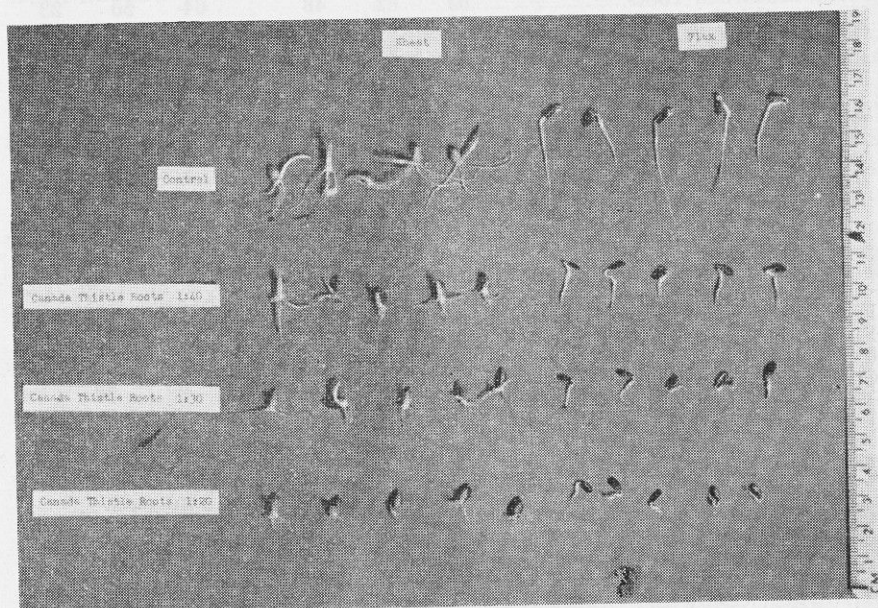 Wheat
Flax
Control
Canada Thistle Roots 1:40
Canada Thistle Roots 1:30
Canada Thistle Roots 1:20
19
18
17
16
15
14
13
12
11
10
9
8
7
6
5
4
3
2
1
CM